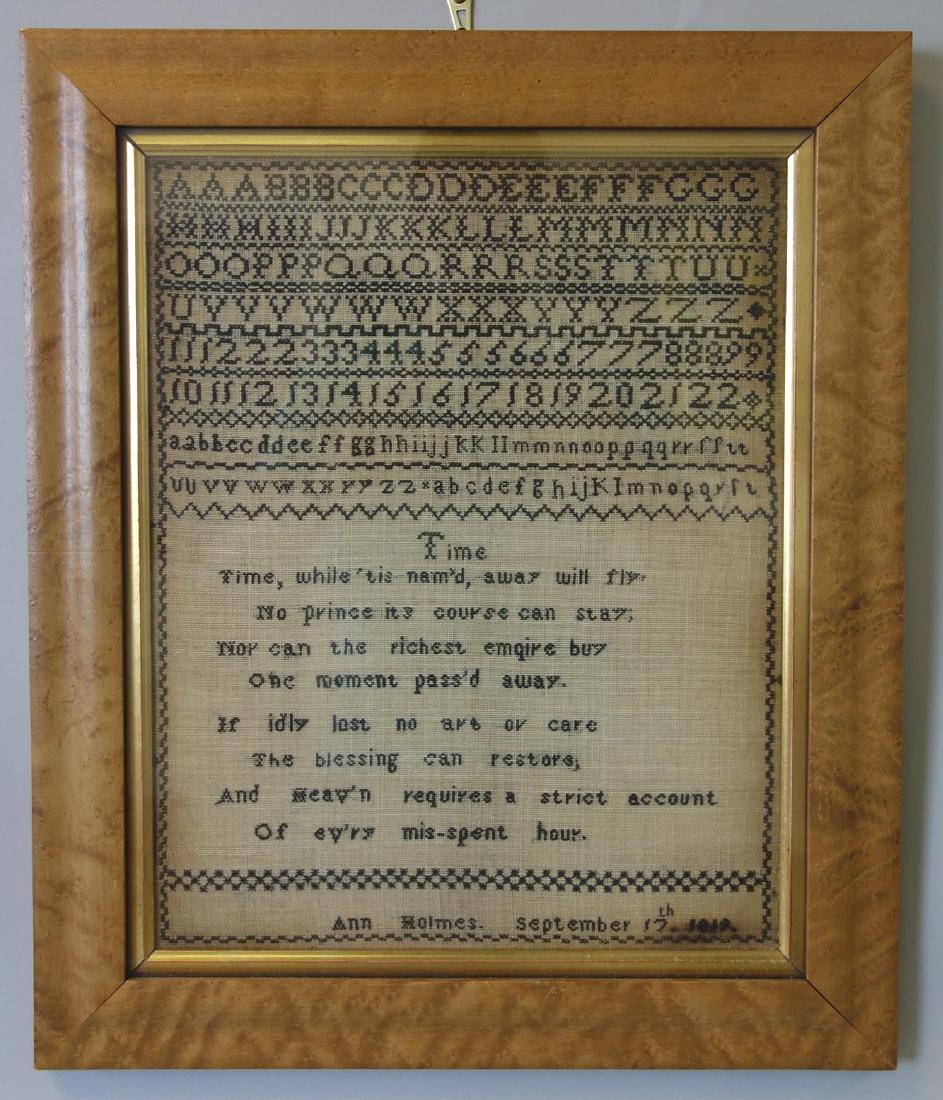 AAABBBCCCDDDEEEFFFGGG
HHHIIIJJJKKKLLLMMMNNN
OOOPPPQQQRRRSSSTTTUU
UVVVWWWXXXYYYZZZ
11122233344455566677788899
10111213141516171819202122
aabbccddeeffgghhiijjkkllmmnnooppqqrrſſtt
uuvvwwxxyyzz abcdefghijklmnopqrſt
Time
Time, while 'tis nam'd, away will fly,
No prince its course can stay;
Nor can the richest empire buy
One moment pass'd away.
If idly lost no art or care
The blessing can restore;
And Heav'n requires a strict account
Of ev'ry mis-spent hour.
Ann Holmes. September 17th. 1819.